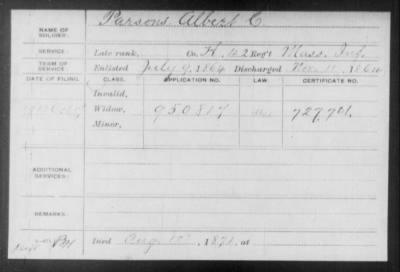 NAME OF SOLDIER: Parsons, Albert C.
SERVICE: Late rank, Co. H, 42 Reg't Mass. Inf.
TERM OF SERVICE: Enlisted July 9, 1864 Discharged Nov. 11, 1864
DATE OF FILING. CLASS. APPLICATION NO. LAW. CERTIFICATE NO.
Invalid,
Widow, 950817 727,701.
Minor,
ADDITIONAL SERVICES:
REMARKS:
Died Aug. 1871, at